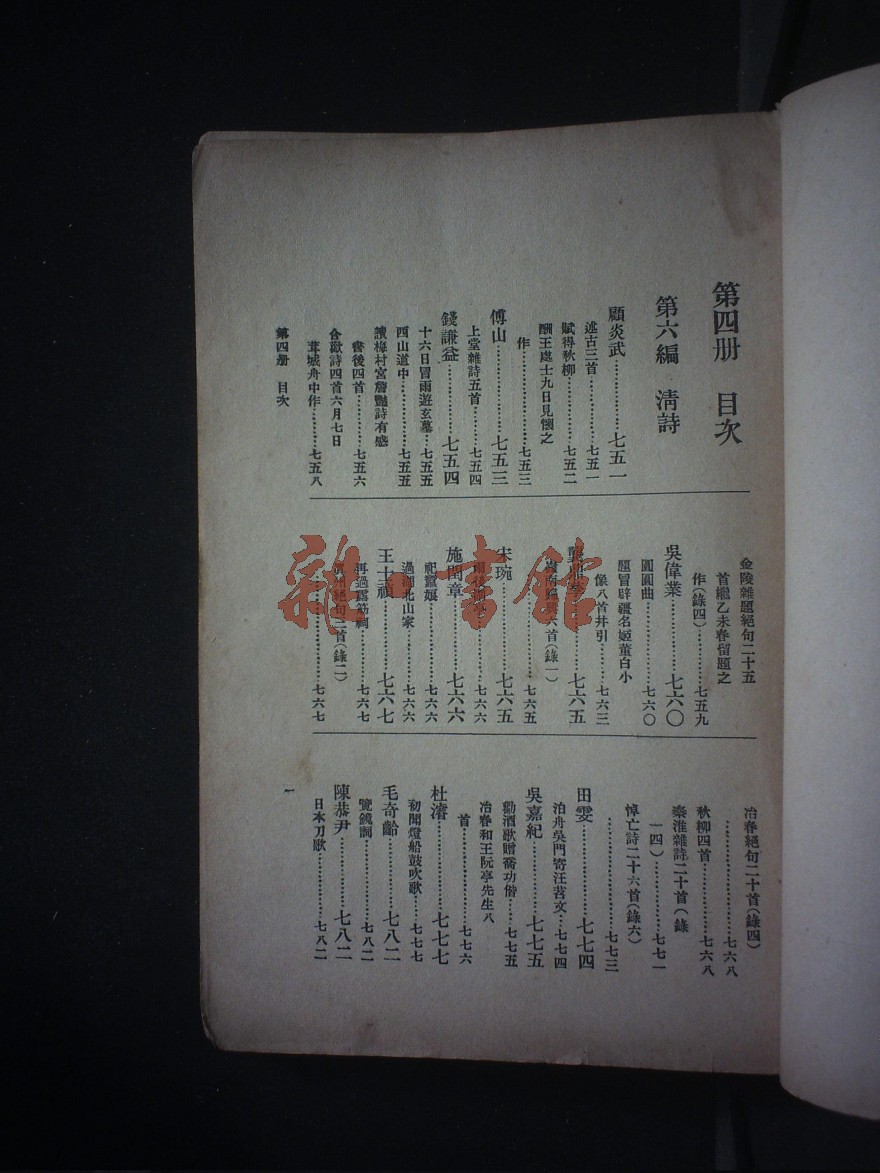 第四册　目次
第六編　清詩
顧炎武………七五一
述古三首………七五一
賦得秋柳………七五二
酬王處士九日見懷之
作………七五三
傅山………七五三
上堂雜詩五首………七五四
錢謙益………七五四
十六日冒雨遊玄墓………七五五
西山道中………七五五
讀梅村宮詹豔詩有感
書後四首………七五六
合歡詩四首六月七日
茸城舟中作………七五八
第四册　目次
金陵雜題絕句二十五
首繼乙未春留題之
作(錄四)………七五九
吳偉業………七六〇
圓圓曲………七六〇
題冒辟疆名姬董白小
像八首并引………七六三
龔鼎孳………七六五
六首(錄一)
………七六五
宋琬………七六五
………七六六
施閏章………七六六
祀蠶娘………七六六
過湖北山家………七六六
王士禎………七六七
再過露筋祠………七六七
真州絕句二首(錄二)
………七六七
冶春絕句二十首(錄四)
………七六八
秋柳四首………七六八
秦淮雜詩二十首(錄
一四)………七七一
悼亡詩二十六首(錄六)
………七七三
田雯………七七四
泊舟吳門寄汪苕文………七七四
吳嘉紀………七七五
勸酒歌贈喬功偕………七七五
冶春和王阮亭先生八
首………七七六
杜濬………七七七
初聞燈船鼓吹歌………七七七
毛奇齡………七八二
覽鏡詞………七八二
陳恭尹………七八二
日本刀歌………七八二
一
雜書館